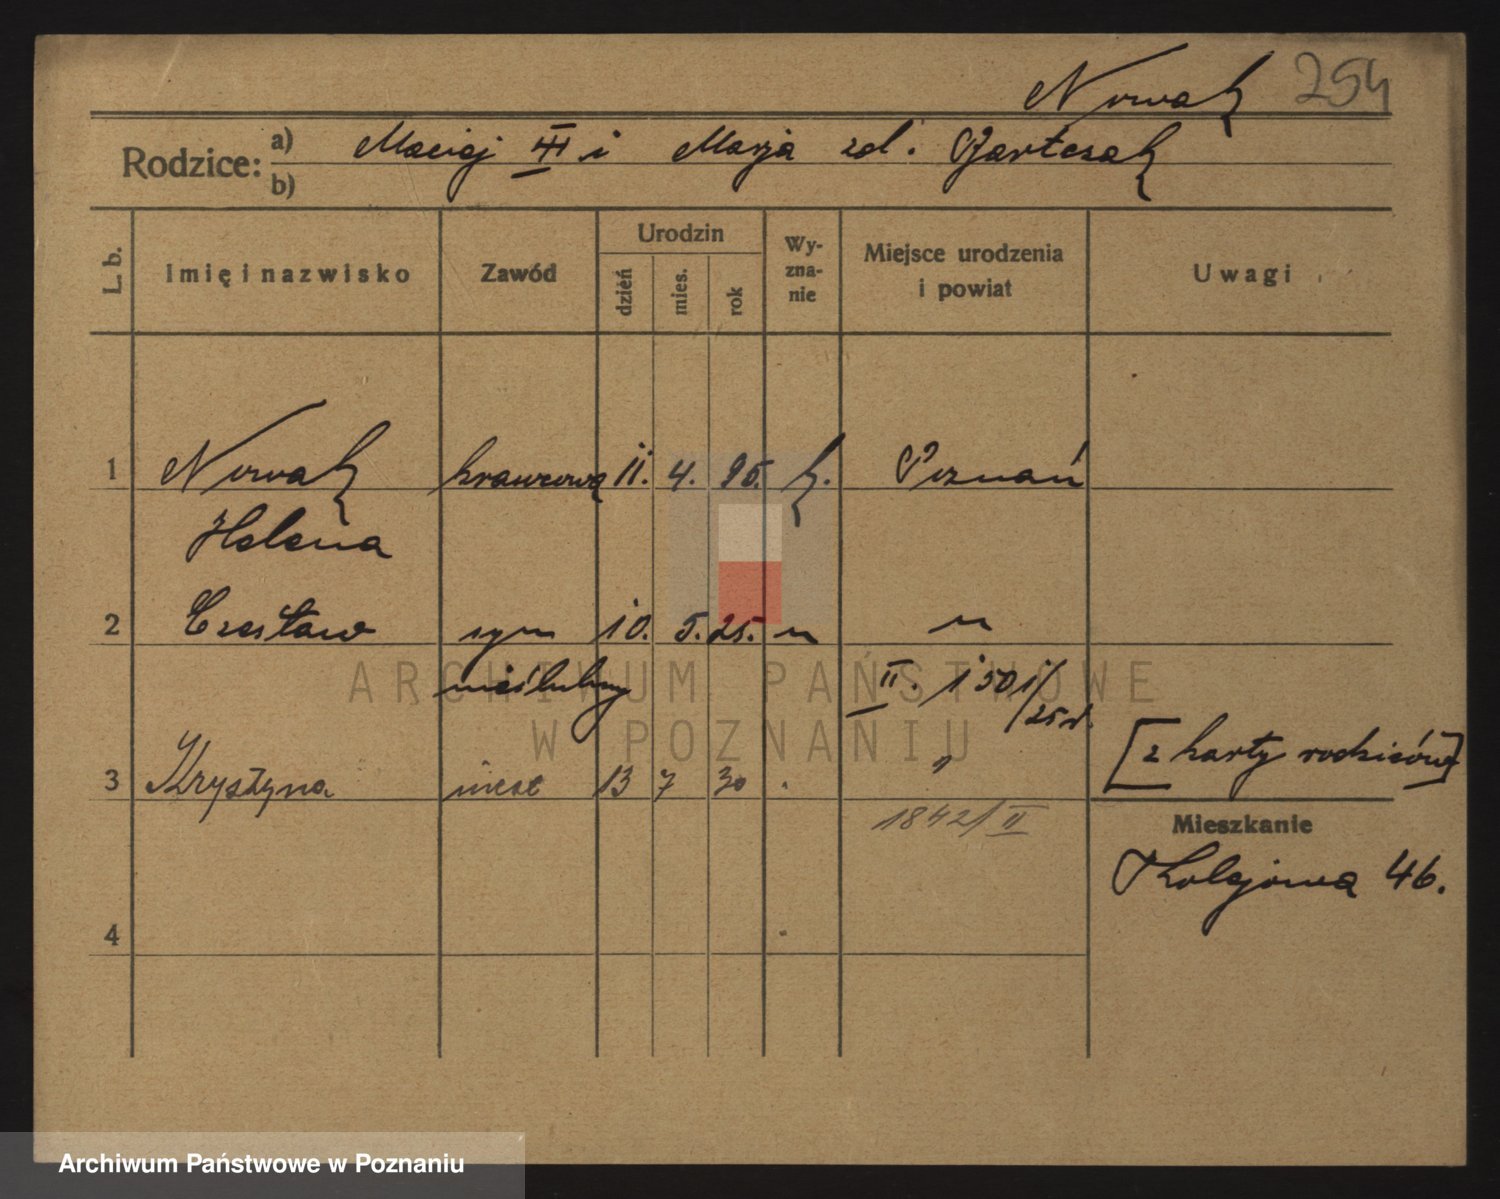 Nowak 254
Rodzice: a) Maciej III i Marja zd. Bartczak
b)
L. b. Imię i nazwisko Zawód Urodzin dzień mies. rok Wy-zna-nie Miejsce urodzenia i powiat Uwagi
1 Nowak krawcowa 11. 4. 95. k. Poznań
Helena
2 Czesław syn 10. 5. 25. " "
nieślubny II. 1501/25r.
3 Krystyna nieśl 13 7 30 . "
[z karty rodziców]
1842/II
Mieszkanie
Kolejowa 46.
4
ARCHIWUM PAŃSTWOWE
W POZNANIU
Archiwum Państwowe w Poznaniu